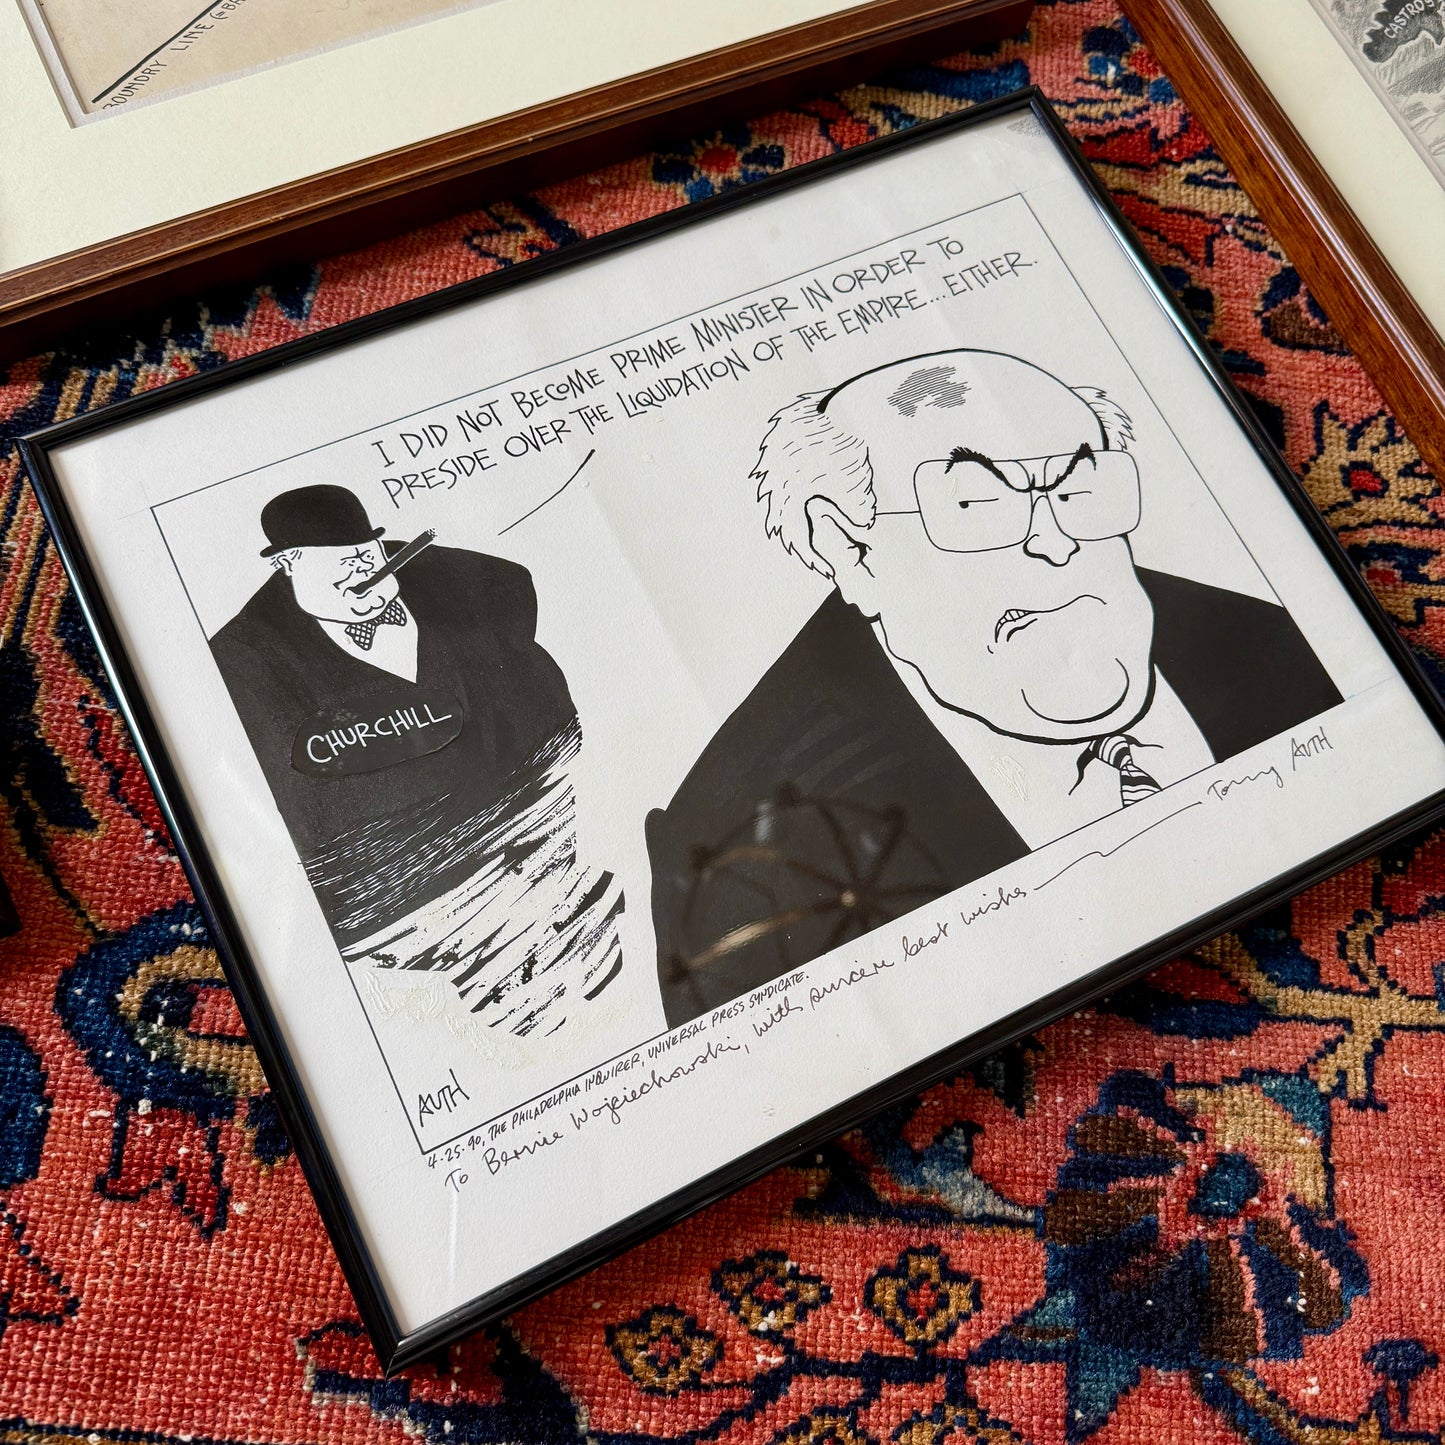 BOUNDRY LINE
CASTRO'S
I DID NOT BECOME PRIME MINISTER IN ORDER TO
PRESIDE OVER THE LIQUIDATION OF THE EMPIRE... EITHER.
CHURCHILL
AUTH
4·25·90, THE PHILADELPHIA INQUIRER, UNIVERSAL PRESS SYNDICATE.
To Bernie Wojciechowski, with sincere best wishes — Tony AUTH